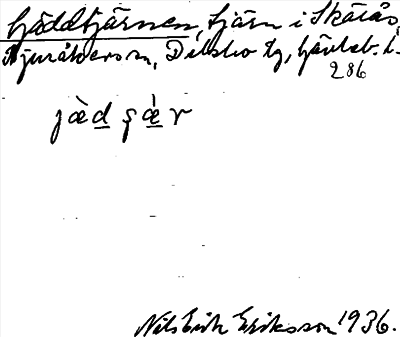 Gäddtjärnen, tjärn i Skålås,
Njutångers sn, Delsbo tg, Gävleb. l.
286
jæ̀d ʂæ̀r
Nils Erik Eriksson 1936.